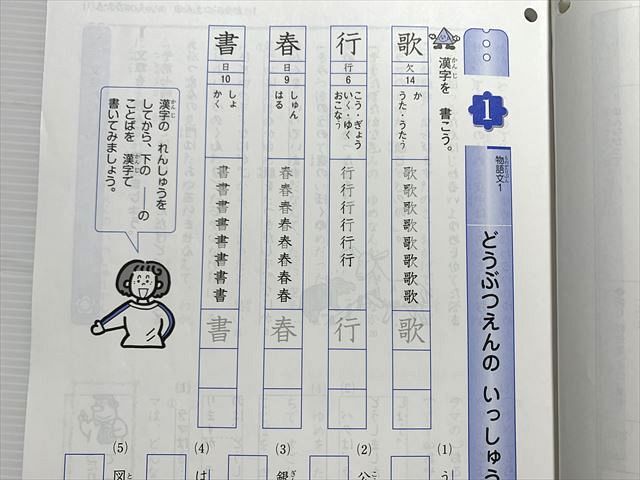 1
物語文1
ものがたりぶん
どうぶつえんの いっしゅう
漢字を 書こう。
かんじ
歌
欠
14
か
うた・うたう
歌歌歌歌歌歌歌歌
歌
行
行
6
こう・ぎょう
いく・ゆく
おこなう
行行行行行行
行
春
日
9
しゅん
はる
春春春春春春春春
春
書
日
10
しょ
かく
書書書書書書書書
書
漢字の れんしゅうを
かんじ
してから、下の ――の
ことばを 漢字で
かんじ
書いてみましょう。
(1)
う
(2)
公
こう
(3)
銀
ぎん
(4)
は
(5)
図
と